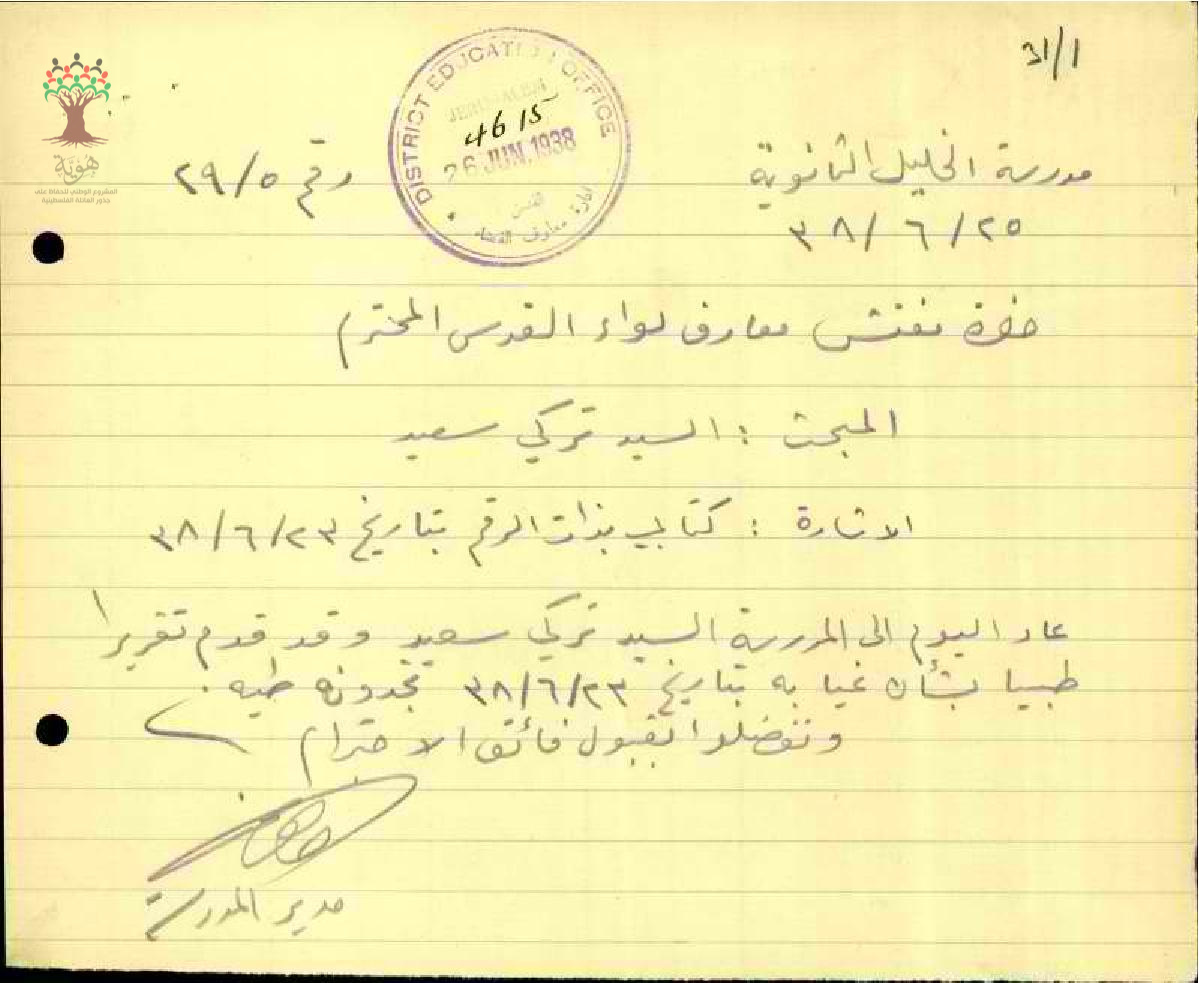 31/1
DISTRICT EDUCATION OFFICE
JERUSALEM
4615
26 JUN. 1938
القدس
ادارة معارف القضاء
هُوِيَّة
المشروع الوطني للحفاظ على
جذور العائلة الفلسطينية
مدرسة الخليل الثانوية
رقم ٢٩/٥
٣٨/٦/٢٥
حضرة مفتش معارف لواء القدس المحترم
المبحث : السيد تركي سعيد
الاشارة : كتابي بذات الرقم بتاريخ ٣٨/٦/٢٣
عاد اليوم الى المدرسة السيد تركي سعيد وقد قدم تقريرا
طبيا بشأن غيابه بتاريخ ٣٨/٦/٢٣ تجدونه طيه .
وتفضلوا بقبول فائق الاحترام
مدير المدرسة